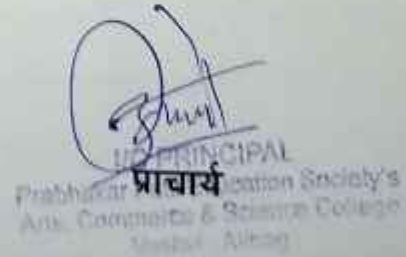 I/C PRINCIPAL
प्राचार्य
Prabhakar Education Society's
Arts, Commerce & Science College